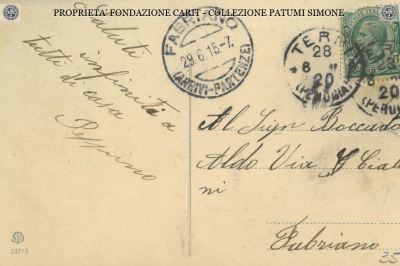 PROPRIETÀ FONDAZIONE CARIT - COLLEZIONE PATUMI SIMONE
Saluti
infiniti a
tutti di casa
Peppino
FABRIANO
29.6.15-7.
(ARRIVI-PARTENZE)
TER
28
6
20
(PERUGIA)
TER
6
20
(PERU
Al Sign Boccado
Aldo Via
ni
Fabriano
35